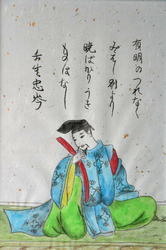 有明のつれなく
みえし別より
暁ばかりうき
ものはなし
壬生忠岑